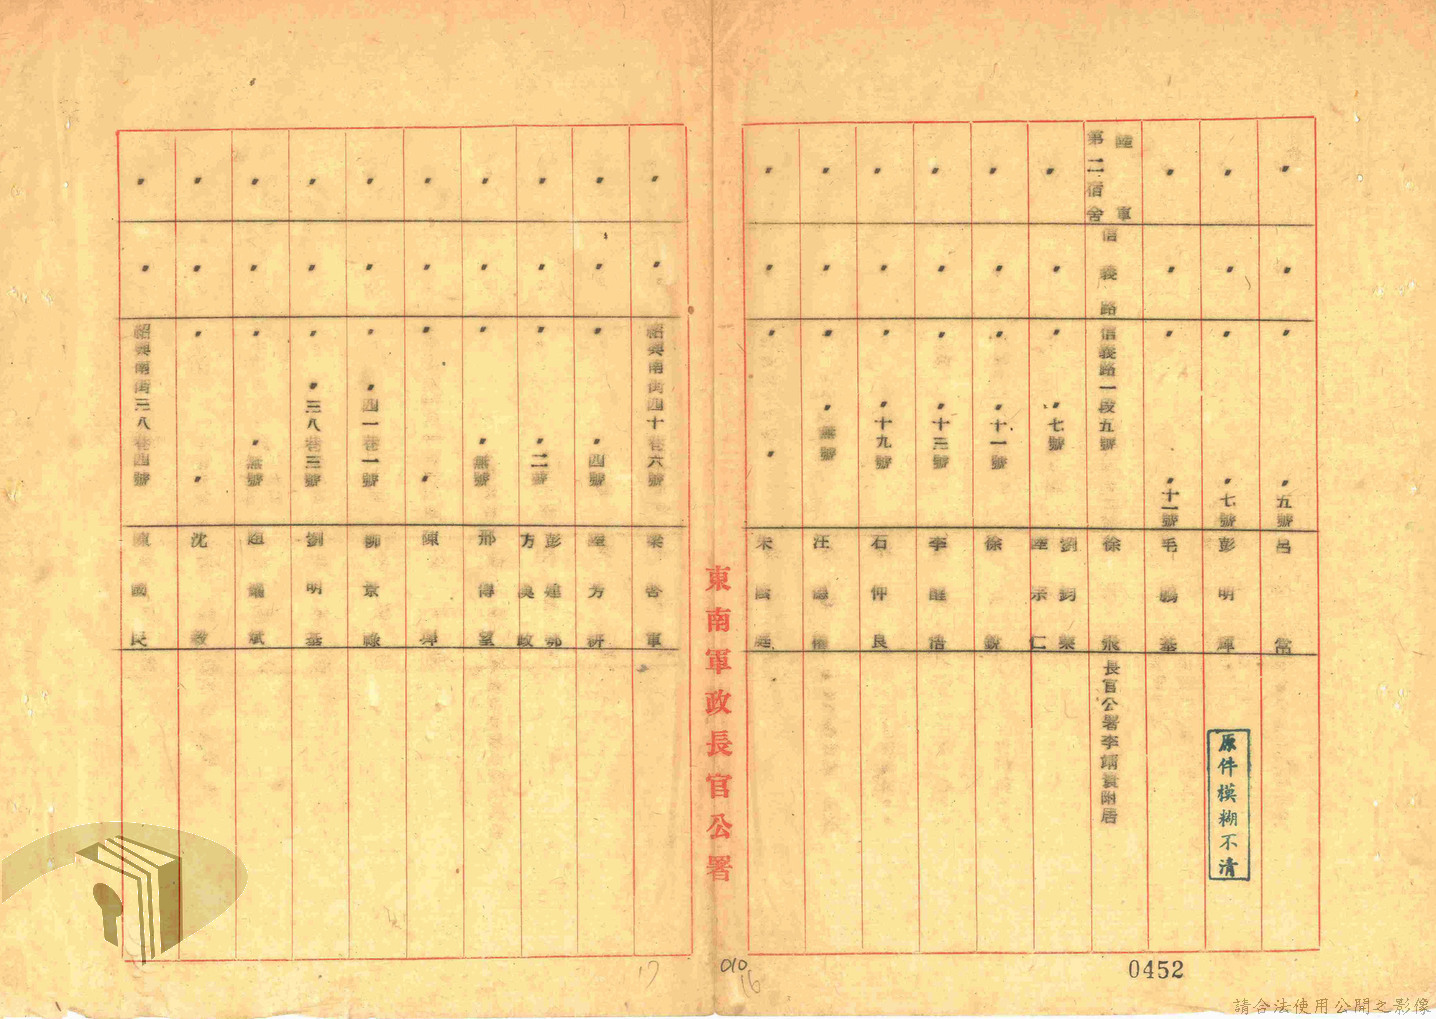 〃 〃 〃 〃五號 呂 當
〃 〃 〃 〃七號 彭明輝
〃 〃 〃 〃十一號 毛鵬基
陸軍第二宿舍 信義路 信義路一段五號 徐 飛 長官公署李 附居
〃 〃 〃 〃七號 劉鈞 陸宗仁
〃 〃 〃 〃十一號 徐 銳
〃 〃 〃 〃十三號 李 浩
〃 〃 〃 〃十九號 石仲良
〃 〃 〃 〃無號 汪
〃 〃 〃 〃 朱
原件模糊不清
東南軍政長官公署
〃 〃 紹興南街四十巷六號 梁 軍
〃 〃 〃 〃四號 陸芳耕
〃 〃 〃 〃二號 彭建鄂 方奐政
〃 〃 〃 〃無號 邢傳望
〃 〃 〃 〃 陳
〃 〃 〃 〃四一巷一號 柳景祿
〃 〃 〃 〃三八巷三號 劉明基
〃 〃 〃 〃無號 趙 斌
〃 〃 〃 〃 沈 毅
〃 〃 紹興南街三八巷四號 陳國民
17
010
16
0452
請合法使用公開之影像